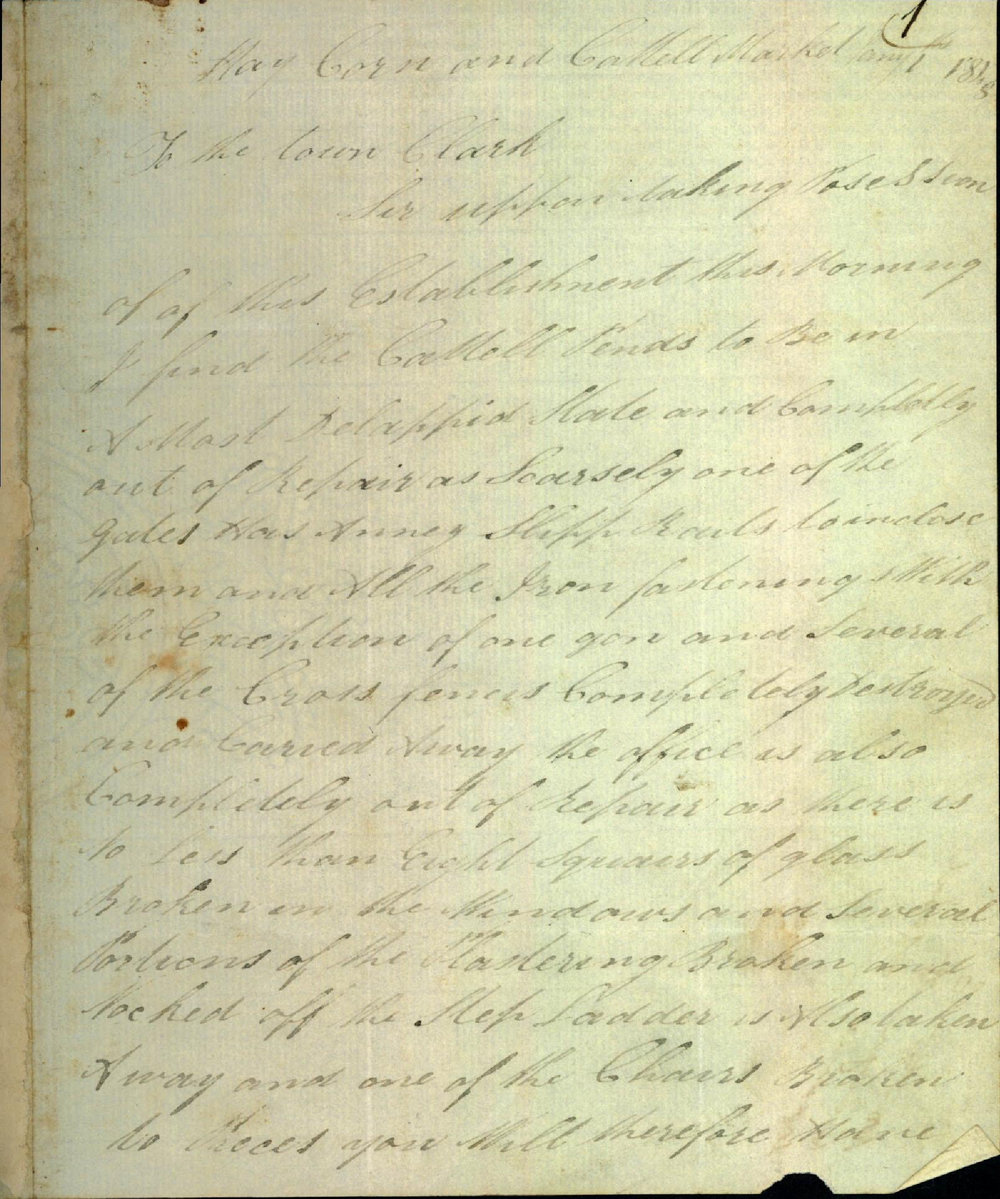 1
Hay Corn and Cattell Market 1 1848
To the town Clark
Sir uppon taking Posession
of of this Establishment this Morning
I find the Cattell Pends to Be in
A Most Delappid State and Complelly
out of Repair as Scarsely one of the
gates Has Anney Slipp Rails to inclose
them and All the Iron fastenings With
the Exception of one gon and Several
of the Cross fences Completely Destroyed
and Caried Away the office is also
Completely out of Repair as there is
no Less than Eight Squairs of glass
Broken in the Windows and Several
Portions of the Plastering Broken and
Nocked off the Step Ladder is Also taken
Away and one of the Chairs Broken
to Peces you Will therefore Have